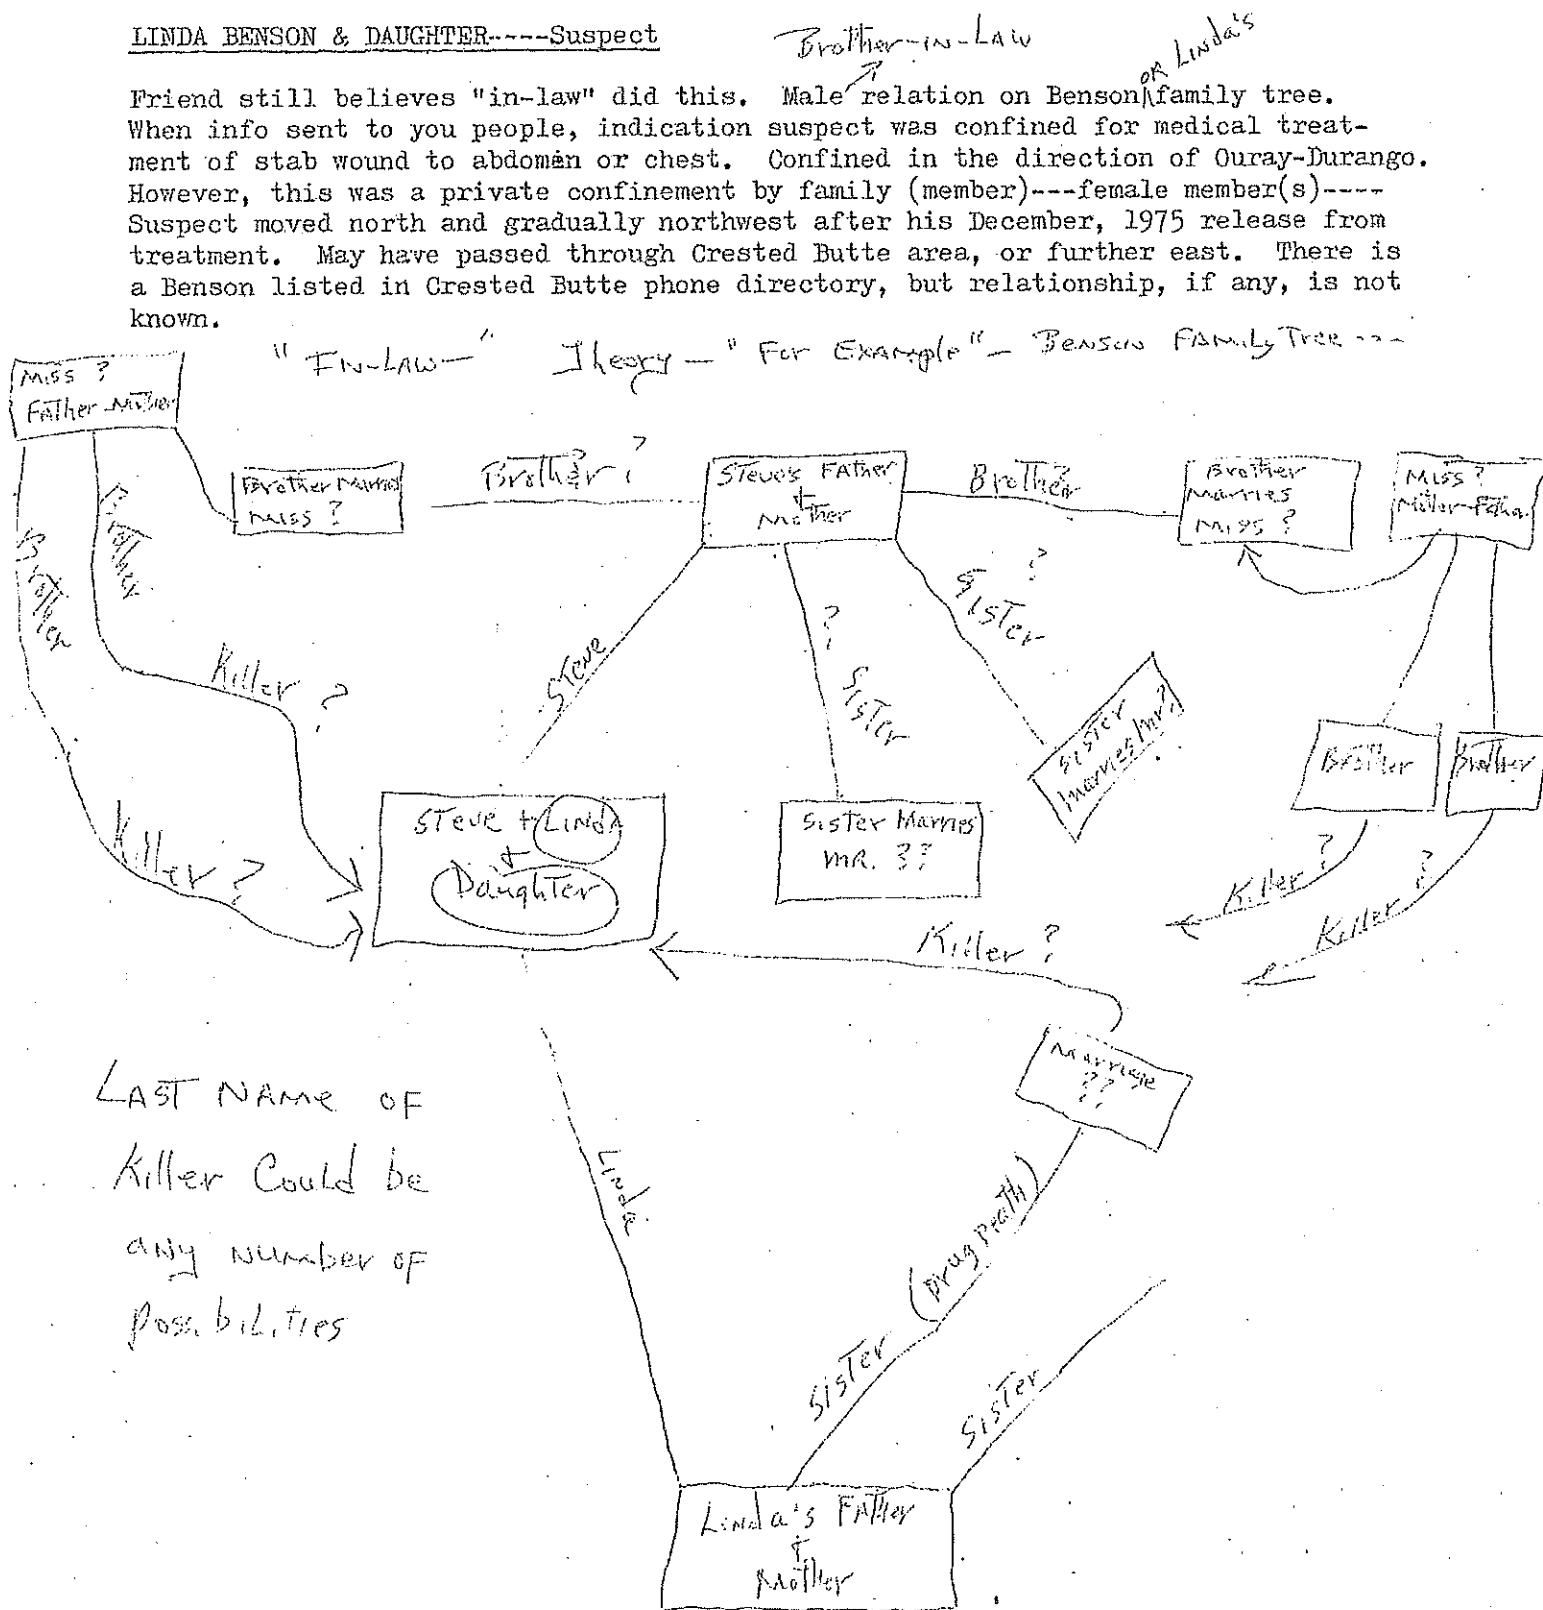 LINDA BENSON & DAUGHTER-----Suspect
Brother-in-Law
or Linda's
Friend still believes "in-law" did this. Male relation on Benson family tree.
When info sent to you people, indication suspect was confined for medical treat-
ment of stab wound to abdomen or chest. Confined in the direction of Ouray-Durango.
However, this was a private confinement by family (member)---female member(s)----
Suspect moved north and gradually northwest after his December, 1975 release from
treatment. May have passed through Crested Butte area, or further east. There is
a Benson listed in Crested Butte phone directory, but relationship, if any, is not
known.
"IN-LAW-" Theory - "For Example" - Benson Family Tree ---
Miss ?
Father-Mother
Brother Marries
Miss ?
Brother ?
Steve's Father
+
Mother
Brother ?
Brother
Marries
Miss ?
Miss ?
Mother-Father
Brother
Brother
Killer ?
Killer ?
Steve
? Sister
? Sister
Sister
Marries Mr. ?
Brother
Brother
Steve + Linda
+
Daughter
Sister Marries
Mr. ??
Killer ?
Killer ?
Killer ?
Marriage
??
??
Last Name of
Killer Could be
any number of
Possibilities
Linda
Sister (Drug Death)
Sister
Linda's Father
+
Mother